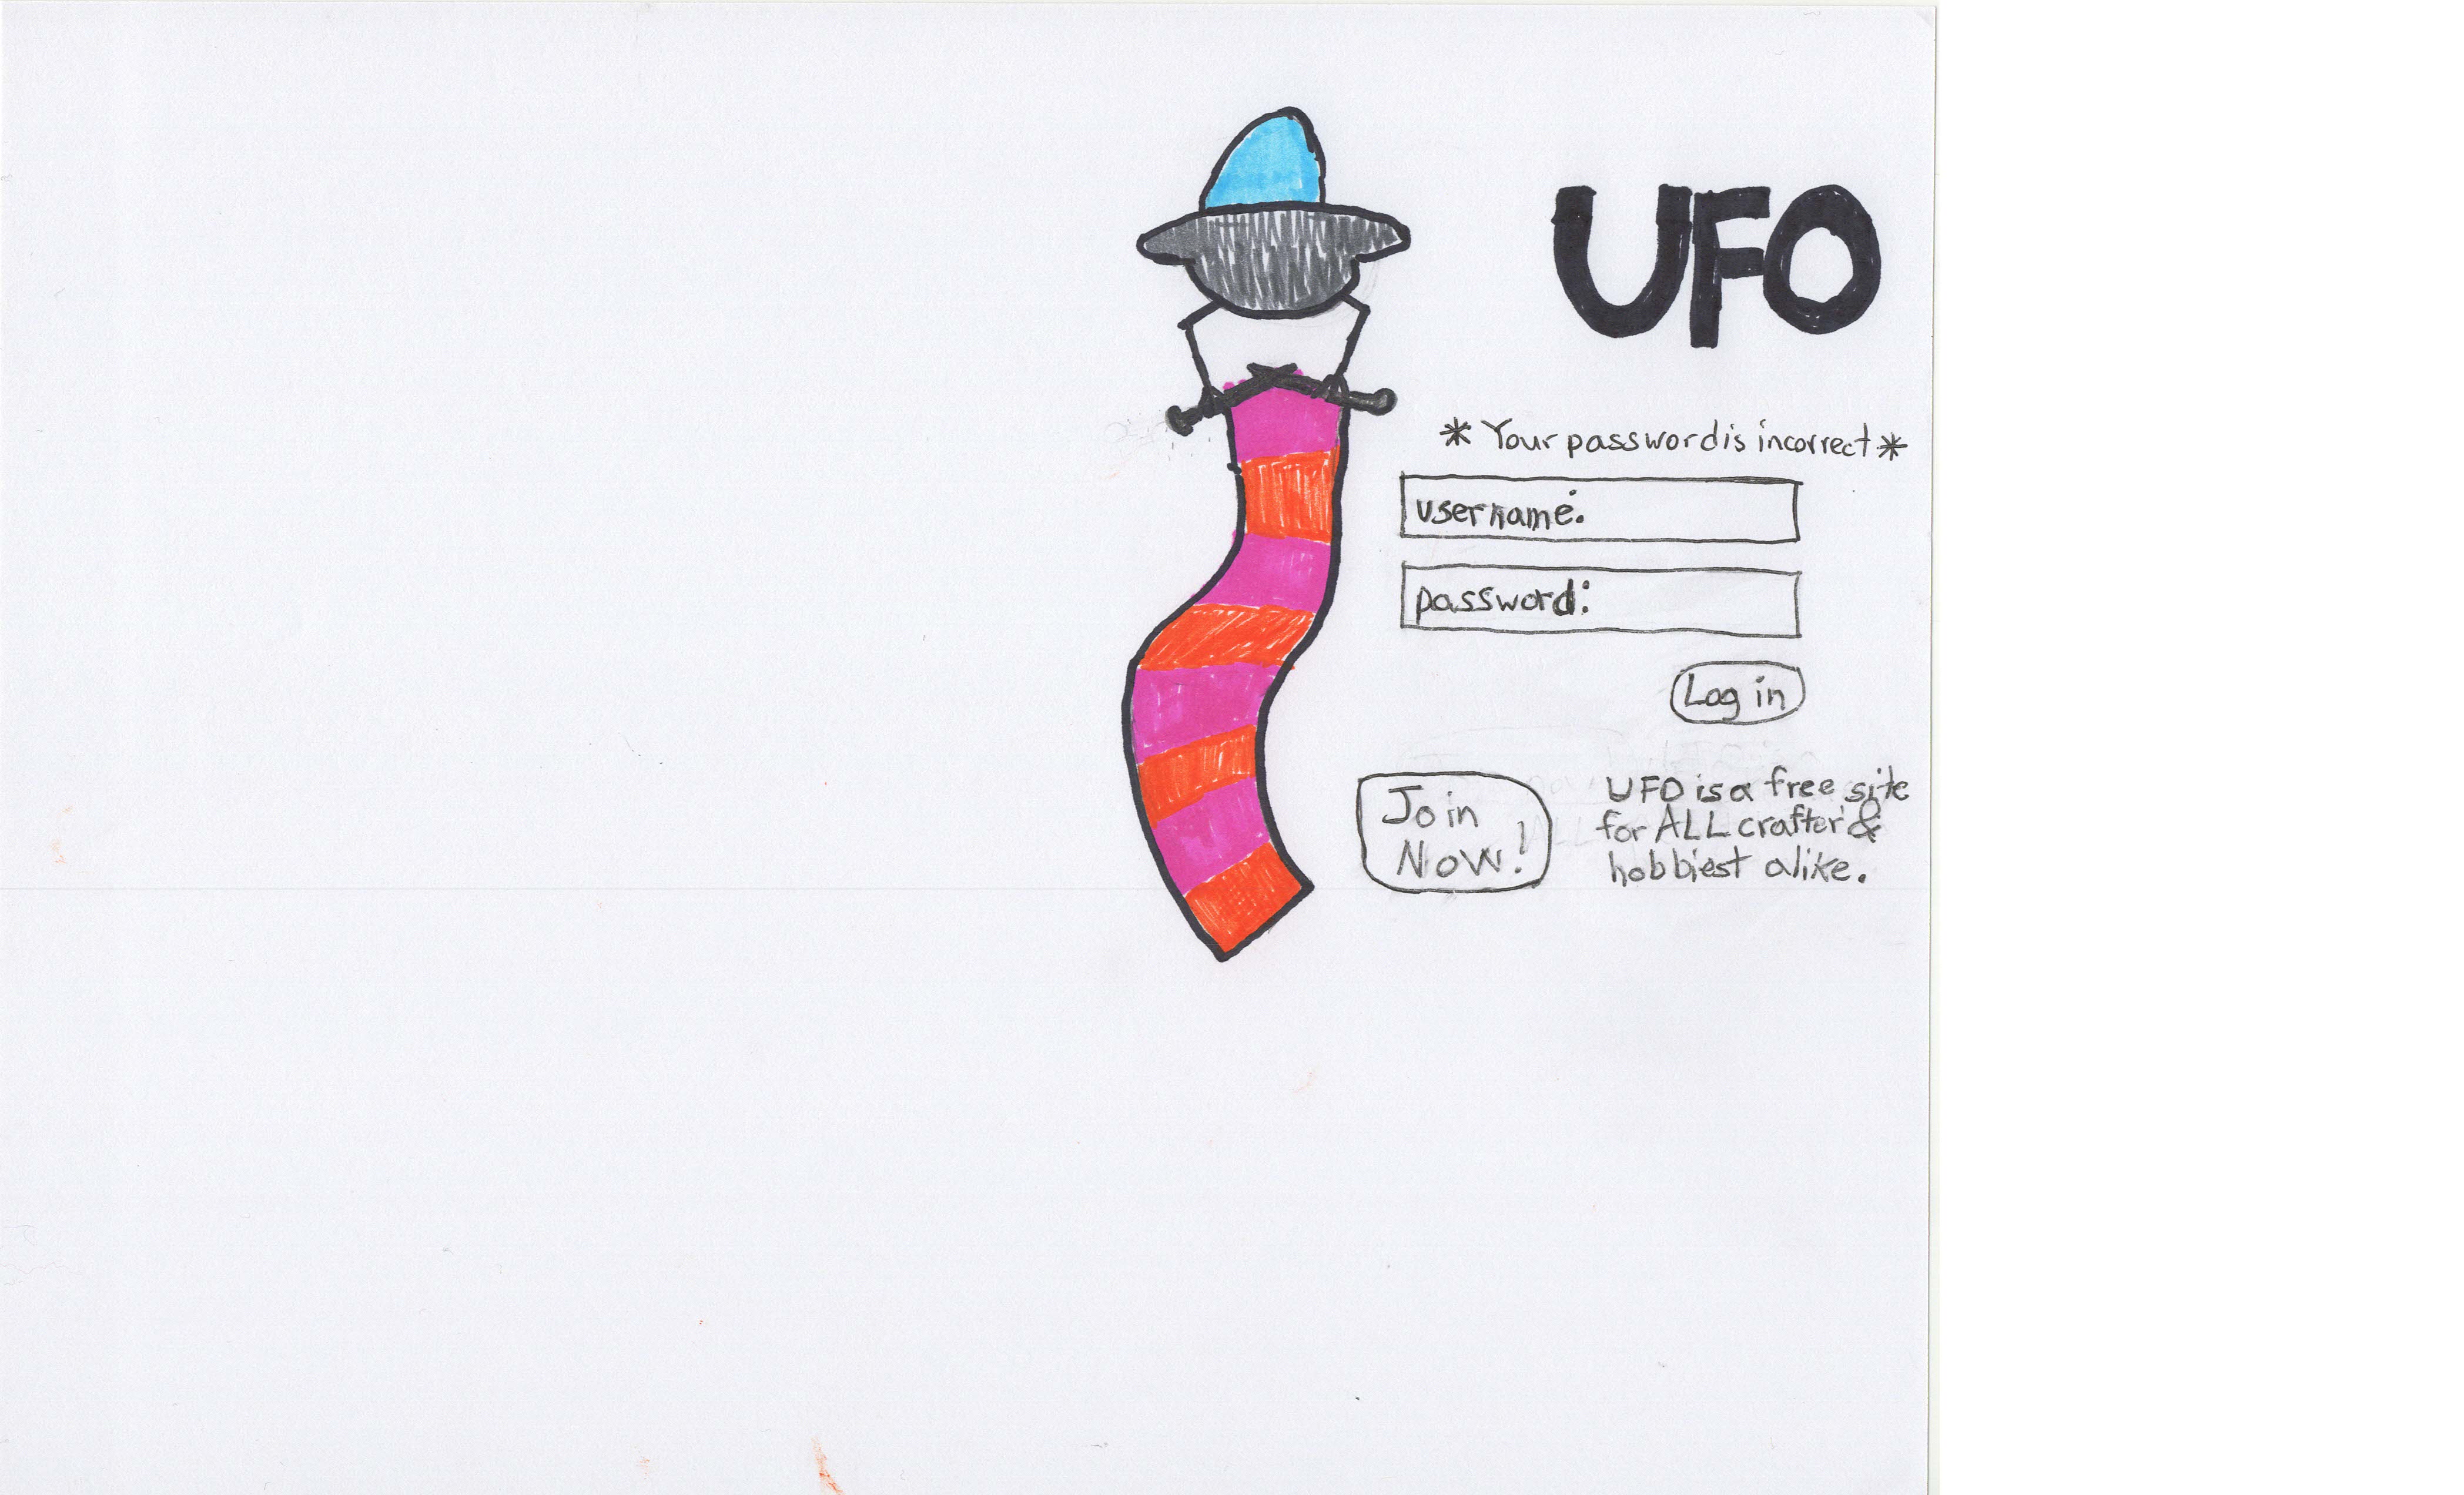 UFO
* Your password is incorrect *
username:
password:
Log in
Join
Now!
UFO is a free site
for ALL crafter &
hobbiest alike.